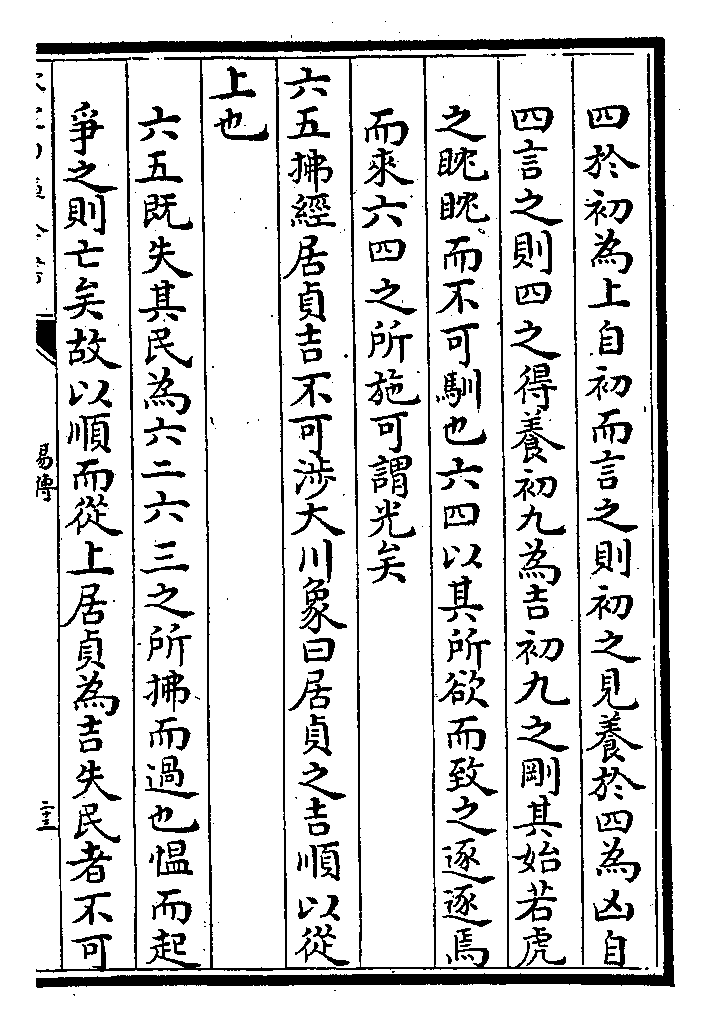 四於初為上自初而言之則初之見養於四為凶自
四言之則四之得養初九為吉初九之剛其始若虎
之眈眈而不可馴也六四以其所欲而致之逐逐焉
而來六四之所施可謂光矣
六五拂經居貞吉不可涉大川象曰居貞之吉順以從
上也
六五既失其民為六二六三之所拂而過也愠而起
爭之則亡矣故以順而從上居貞為吉失民者不可
易傳